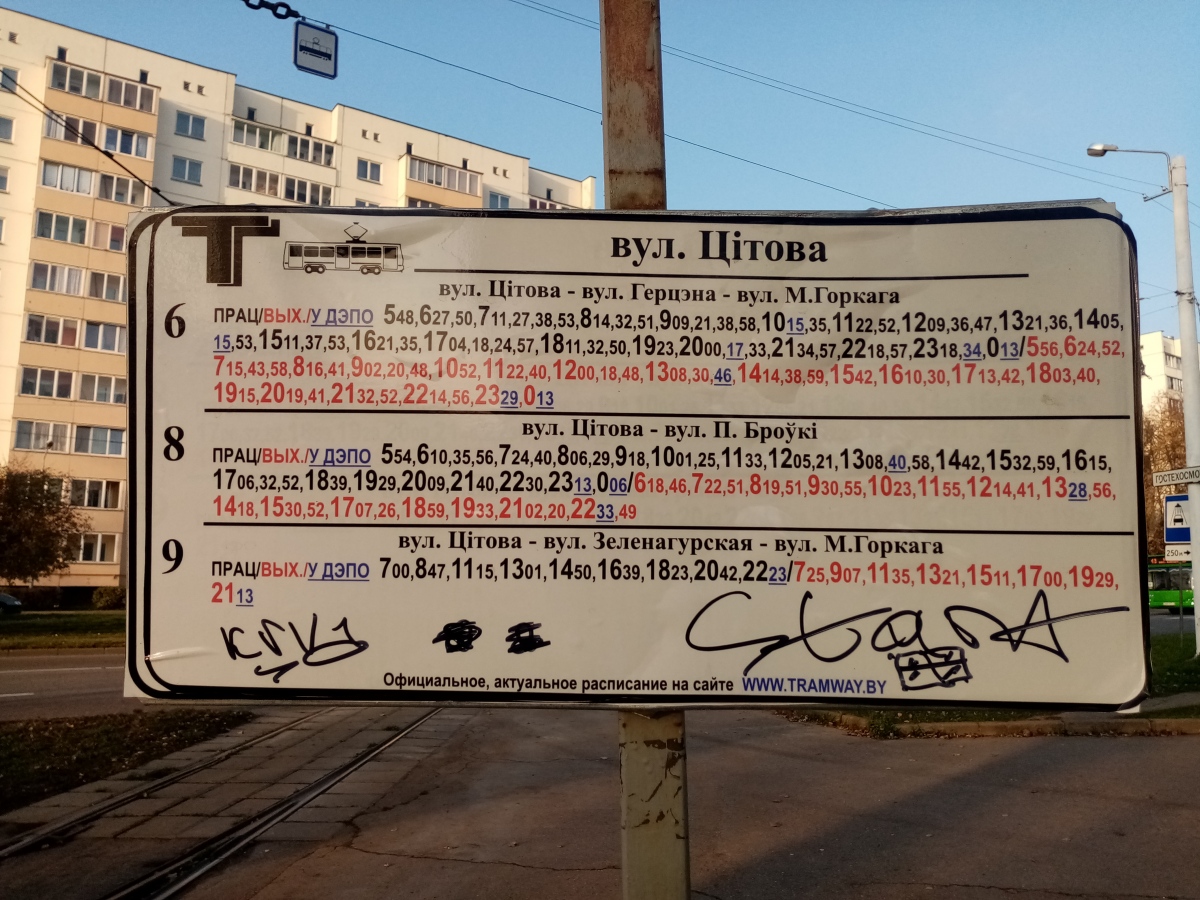 Т
вул. Цітова
вул. Цітова - вул. Герцэна - вул. М.Горкага
6
ПРАЦ/ВЫХ./У ДЭПО 548,627,50,711,27,38,53,814,32,51,909,21,38,58,1015,35,1122,52,1209,36,47,1321,36,1405,
15,53,1511,37,53,1621,35,1704,18,24,57,1811,32,50,1923,2000,17,33,2134,57,2218,57,2318,34,013/556,624,52,
715,43,58,816,41,902,20,48,1052,1122,40,1200,18,48,1308,30,46,1414,38,59,1542,1610,30,1713,42,1803,40,
1915,2019,41,2132,52,2214,56,2329,013
вул. Цітова - вул. П. Броўкі
8
ПРАЦ/ВЫХ./У ДЭПО 554,610,35,56,724,40,806,29,918,1001,25,1133,1205,21,1308,40,58,1442,1532,59,1615,
1706,32,52,1839,1929,2009,2140,2230,2313,006/618,46,722,51,819,51,930,55,1023,1155,1214,41,1328,56,
1418,1530,52,1707,26,1859,1933,2102,20,2233,49
вул. Цітова - вул. Зеленагурская - вул. М.Горкага
9
ПРАЦ/ВЫХ./У ДЭПО 700,847,1115,1301,1450,1639,1823,2042,2223/725,907,1135,1321,1511,1700,1929,
2113
Официальное, актуальное расписание на сайте WWW.TRAMWAY.BY
ГОСТЕХОСМО
250м